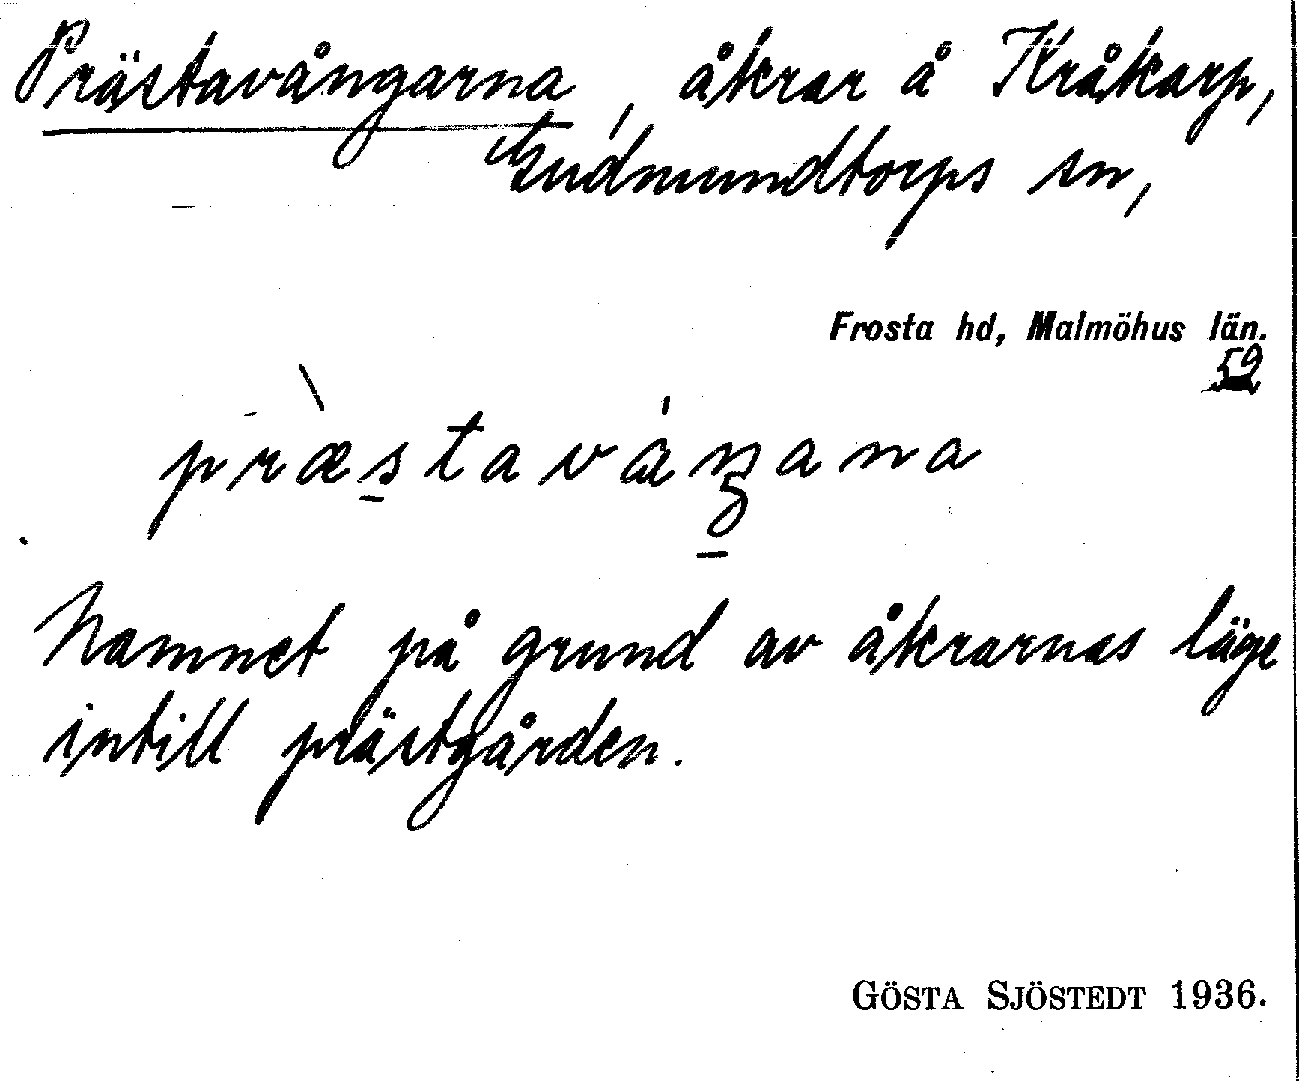 Prästavångarna, åkrar å Kråkarp,
Gudmundtorps sn,
Frosta hd, Malmöhus län.
52
præ̀s̱tavåŋana
Namnet på grund av åkrarnas läge
intill prästgården.
GÖSTA SJÖSTEDT 1936.